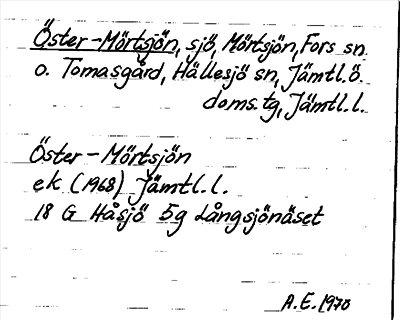 Öster-Mörtsjön, sjö, Mörtsjön, Fors sn
o. Tomasgård, Hällesjö sn, Jämtl.ö.
doms.tg, Jämtl.l.
Öster-Mörtsjön
ek (1968) Jämtl.l.
18 G Håsjö 5g Långsjönäset
A.E. 1970